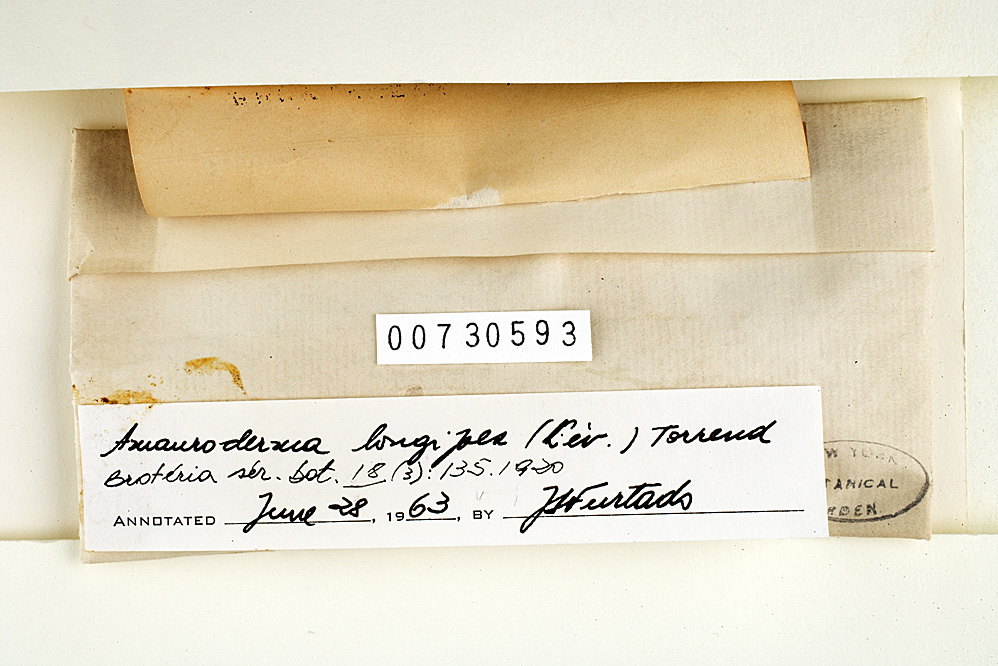 00730593
Amauroderma longipes (Lév.) Torrend
Brotéria sér. bot. 18 (3): 135. 1920
ANNOTATED June 28, 1963, BY JSFurtado
W YORK
TANICAL
RDEN